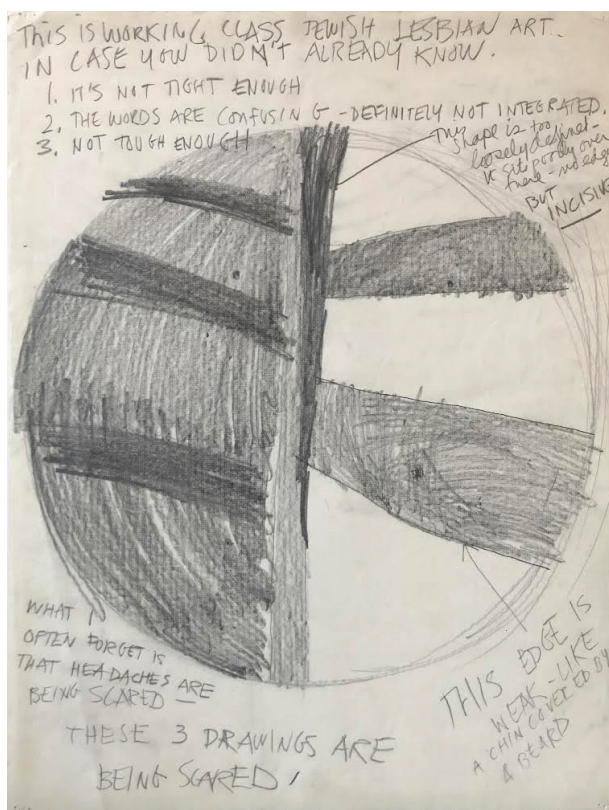 THIS IS WORKING CLASS JEWISH LESBIAN ART.
IN CASE YOU DIDN'T ALREADY KNOW.
1. IT'S NOT TIGHT ENOUGH
2. THE WORDS ARE CONFUSING - DEFINITELY NOT INTEGRATED.
3. NOT TOUGH ENOUGH
shape is too
loosely defined -
it sits poorly over
there - no edge
BUT
INCISIVE
WHAT I
OFTEN FORGET IS
THAT HEADACHES ARE
BEING SCARED —
THESE 3 DRAWINGS ARE
BEING SCARED
THIS EDGE IS
WEAK - LIKE
A CHIN COVERED BY
A BEARD